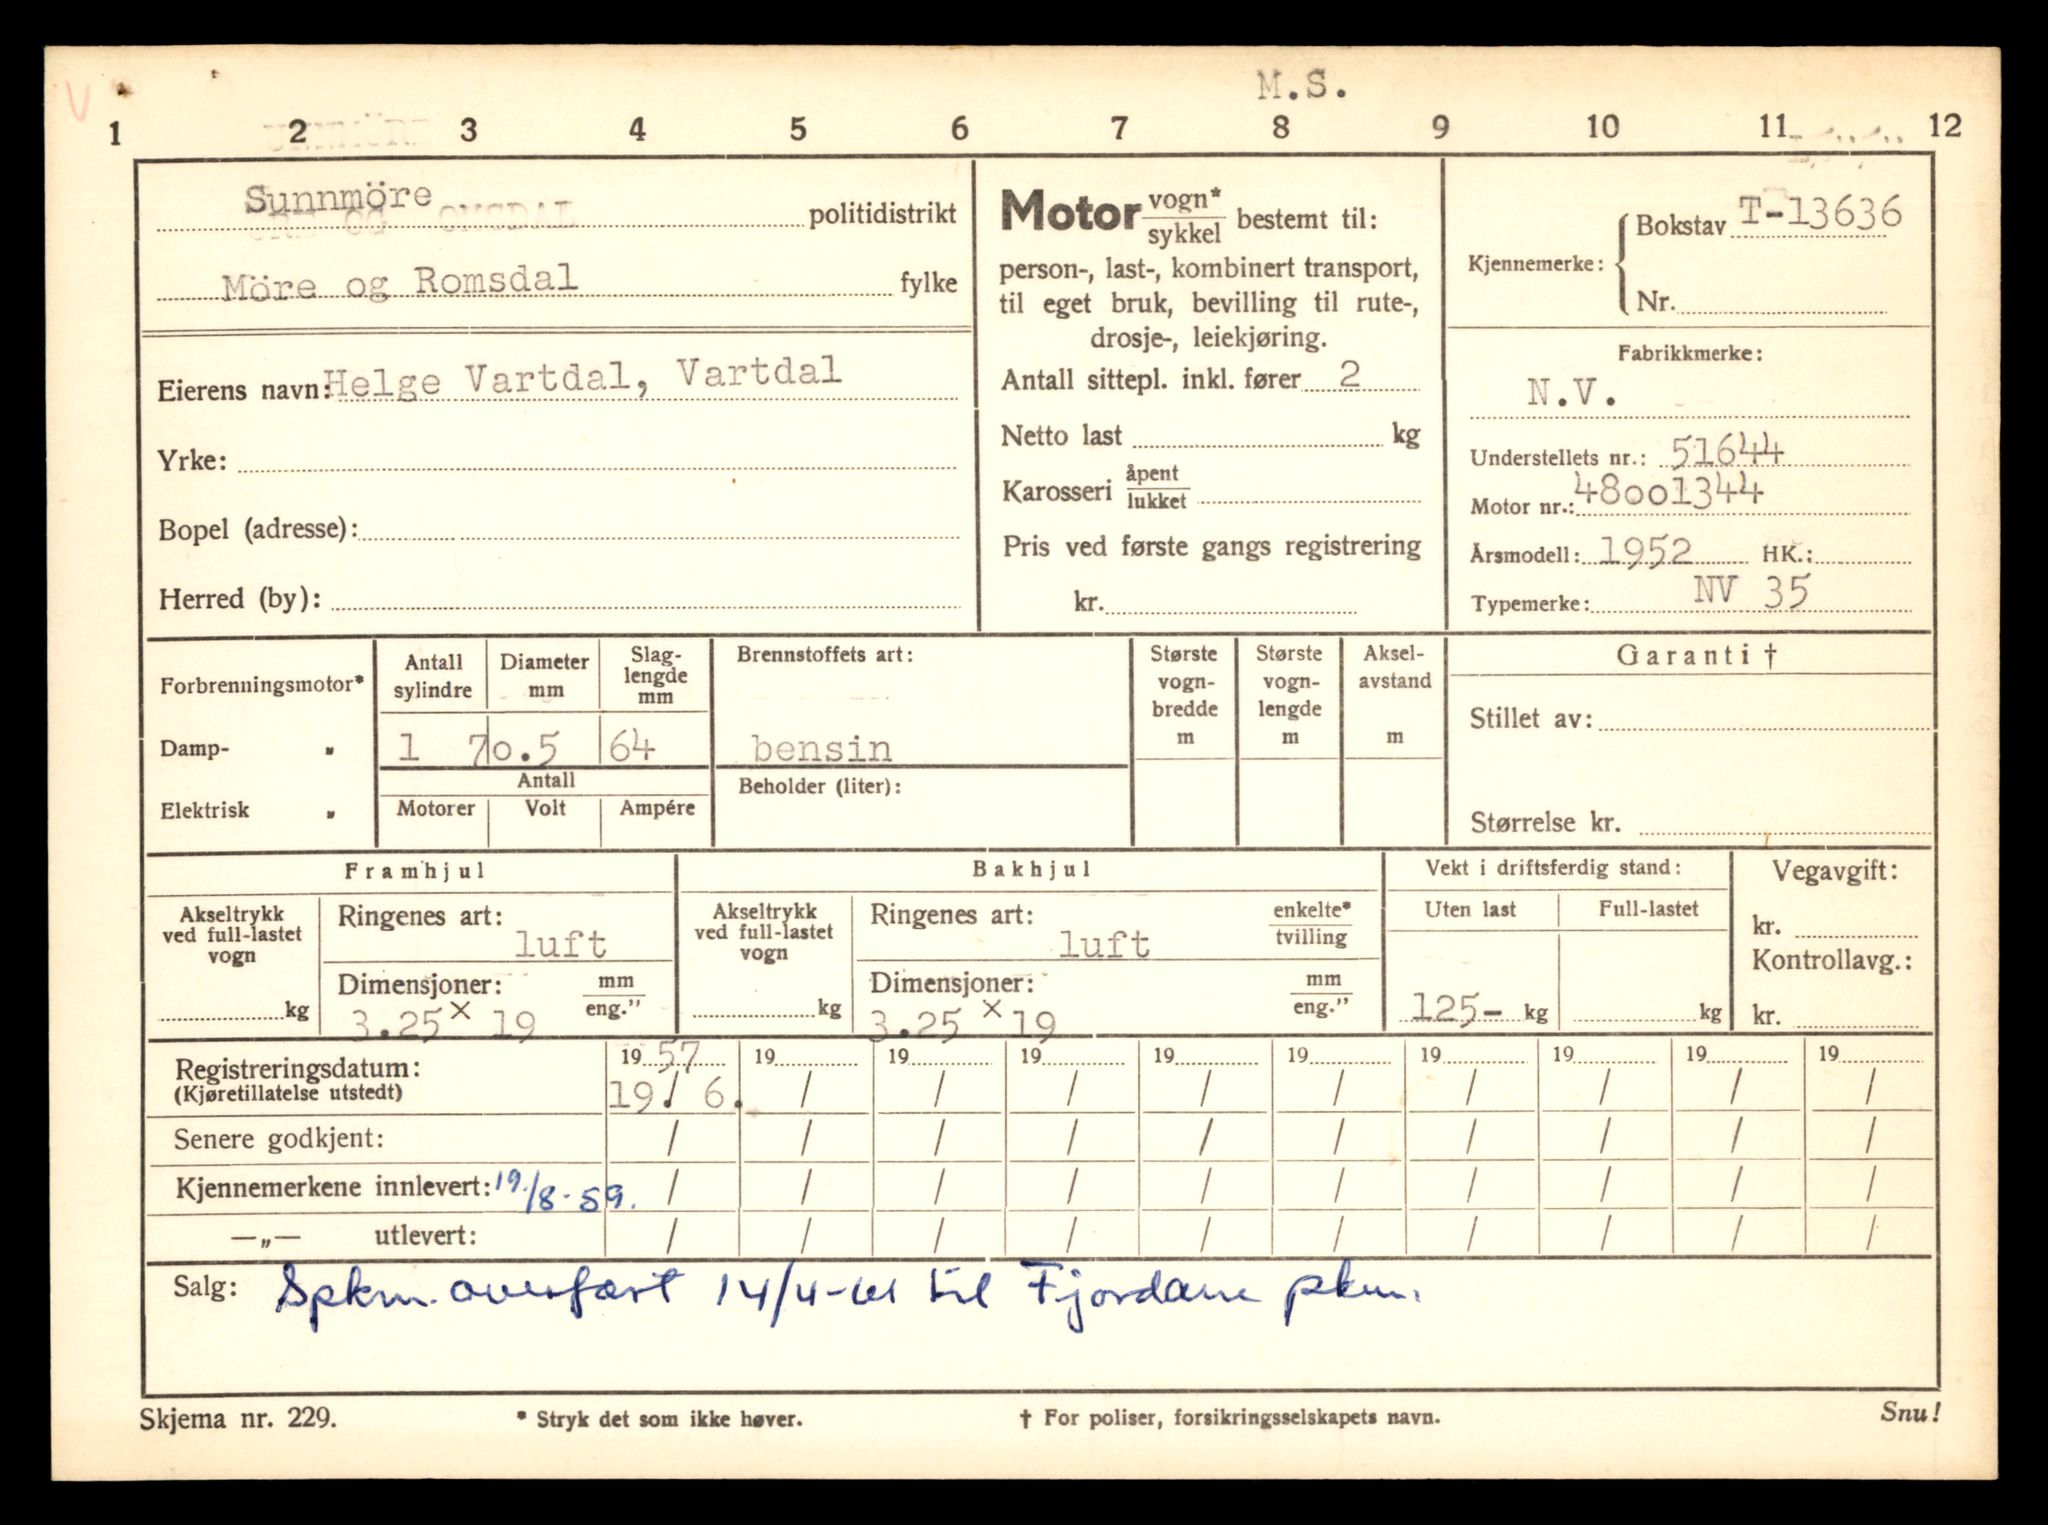 M.S.
1 2 3 4 5 6 7 8 9 10 11 12
Sunnmöre politidistrikt
Möre og Romsdal fylke
Eierens navn: Helge Vartdal, Vartdal
Yrke:
Bopel (adresse):
Herred (by):
Motor vogn* / sykkel bestemt til:
person-, last-, kombinert transport,
til eget bruk, bevilling til rute-,
drosje-, leiekjøring.
Antall sittepl. inkl. fører 2
Netto last kg
Karosseri åpent / lukket
Pris ved første gangs registrering
kr.
Kjennemerke: Bokstav T-13636
Nr.
Fabrikkmerke:
N.V.
Understellets nr.: 51644
Motor nr.: 48001344
Årsmodell: 1952 HK.:
Typemerke: NV 35
Forbrenningsmotor*
Damp- „
Elektrisk „
Antall sylindre
Diameter mm
Slag-lengde mm
1 70.5 64
Antall
Motorer Volt Ampére
Brennstoffets art:
bensin
Beholder (liter):
Største vogn-bredde m
Største vogn-lengde m
Aksel-avstand m
Garanti †
Stillet av:
Størrelse kr.
Framhjul
Akseltrykk ved full-lastet vogn
kg
Ringenes art:
luft
Dimensjoner: mm / eng."
3.25 x 19
Bakhjul
Akseltrykk ved full-lastet vogn
kg
Ringenes art: enkelte* / tvilling
luft
Dimensjoner: mm / eng."
3.25 x 19
Vekt i driftsferdig stand:
Uten last Full-lastet
125- kg kg
Vegavgift:
kr.
Kontrollavg.:
kr.
Registreringsdatum: 19 57 19 19 19 19 19 19 19 19 19
(Kjøretillatelse utstedt) 19./ 6. / / / / / / / / /
Senere godkjent: / / / / / / / / / /
Kjennemerkene innlevert: 19./8-59. / / / / / / / / / /
—„— utlevert: / / / / / / / / / /
Salg: Spkm. overført 14/4-61 til Fjordane pkm.
Skjema nr. 229. * Stryk det som ikke høver. † For poliser, forsikringsselskapets navn. Snu!